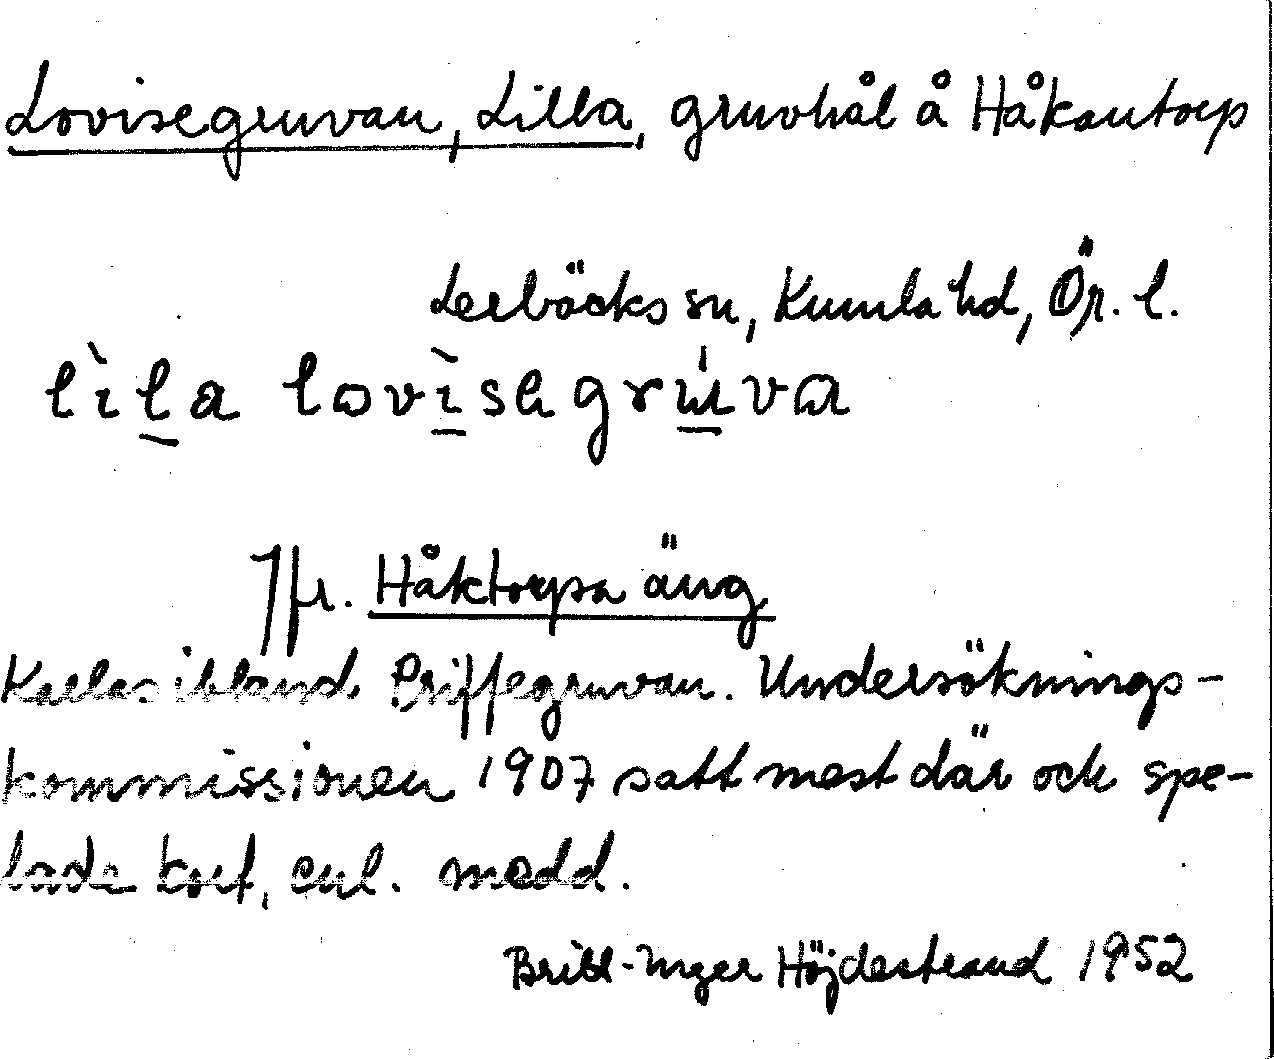 Lovisegruvan, Lilla, gruvhål å Håkantorp
Lerbäcks sn, Kumla hd, Ör. l.
lìla lovìsegrúva
Jfr. Håktorpsa äng
Kallas ibland Priffegruvan. Undersöknings-
kommissionen 1907 satt mest där och spe-
lade kort, enl. medd.
Britt-Inger Höjdestrand 1952